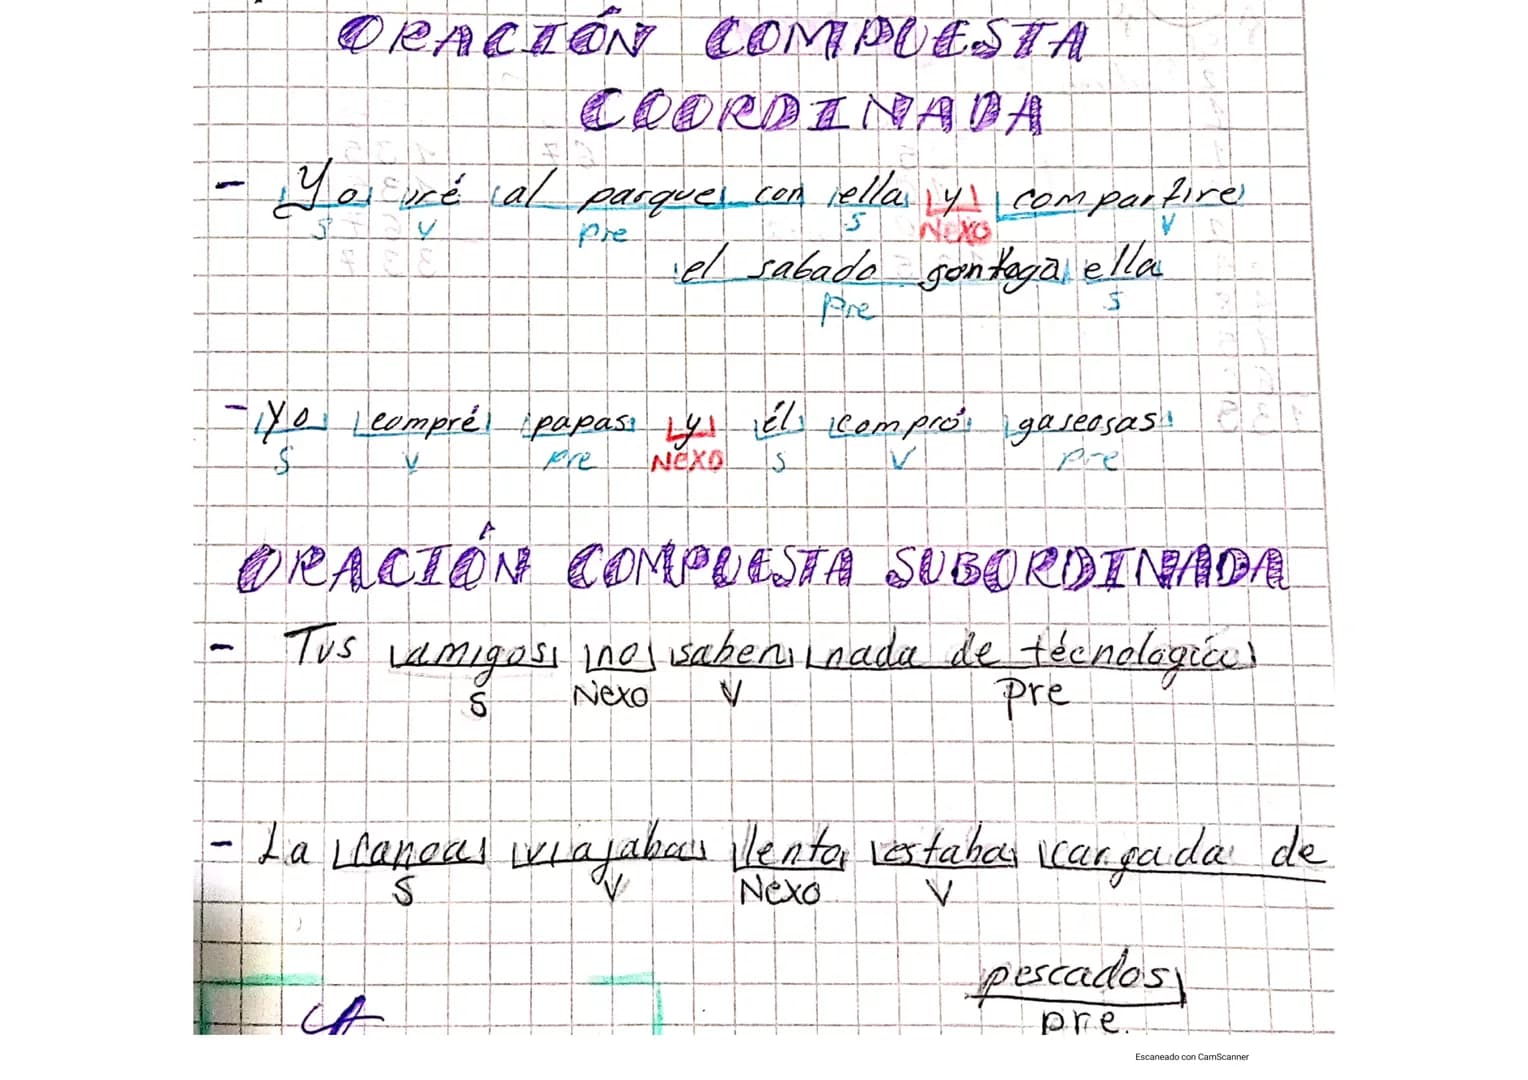 ORACIÓN COMPUESTA
COORDINADA
- Yo iré al parque con ella y compartire
S V Pre S Nexo V
el sabado ella
Pre S
- Yo compré papas y él compró gaseosas
S V Pre NEXO S V Pre
ORACIÓN COMPUESTA SUBORDINADA
- Tus amigos no saben nada de técnología
S Nexo V Pre
- La canoa viajaba lenta estaba cargada de
S V Nexo V
pescados
pre.
Escaneado con CamScanner